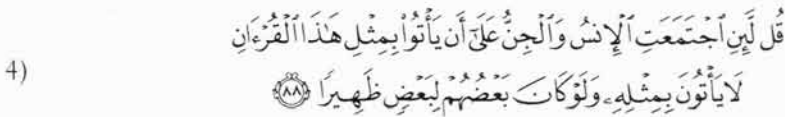 قُل لَّئِنِ ٱجْتَمَعَتِ ٱلْإِنسُ وَٱلْجِنُّ عَلَىٰٓ أَن يَأْتُوا۟ بِمِثْلِ هَـٰذَا ٱلْقُرْءَانِ
4)
لَا يَأْتُونَ بِمِثْلِهِۦ وَلَوْ كَانَ بَعْضُهُمْ لِبَعْضٍ ظَهِيرًا ٨٨